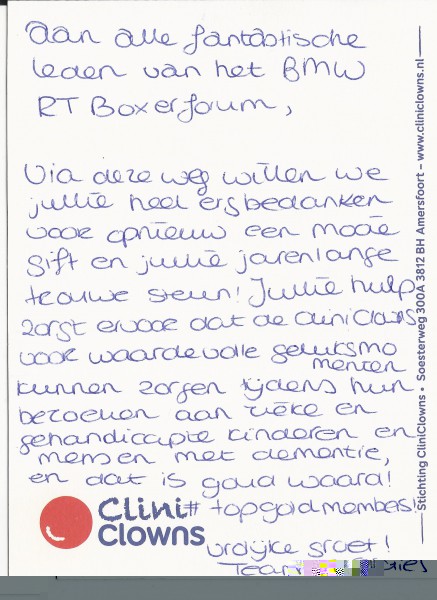 Aan alle fantastische
leden van het BMW
RT Boxerfourm,
Via deze weg willen we
jullie heel erg bedanken
voor opnieuw een mooie
gift en jullie jarenlange
trouwe steun! Jullie hulp
zorgt ervoor dat de CliniClowns
voor waardevolle geluksmo
menten
kunnen zorgen tijdens hun
bezoeken aan zieke en
gehandicapte kinderen en
mensen met dementie,
en dat is goud waard!
# topgoldmembers!
Clini
Clowns
urolijke groet!
Team
Stichting CliniClowns • Soesterweg 300A 3812 BH Amersfoort – www.cliniclowns.nl